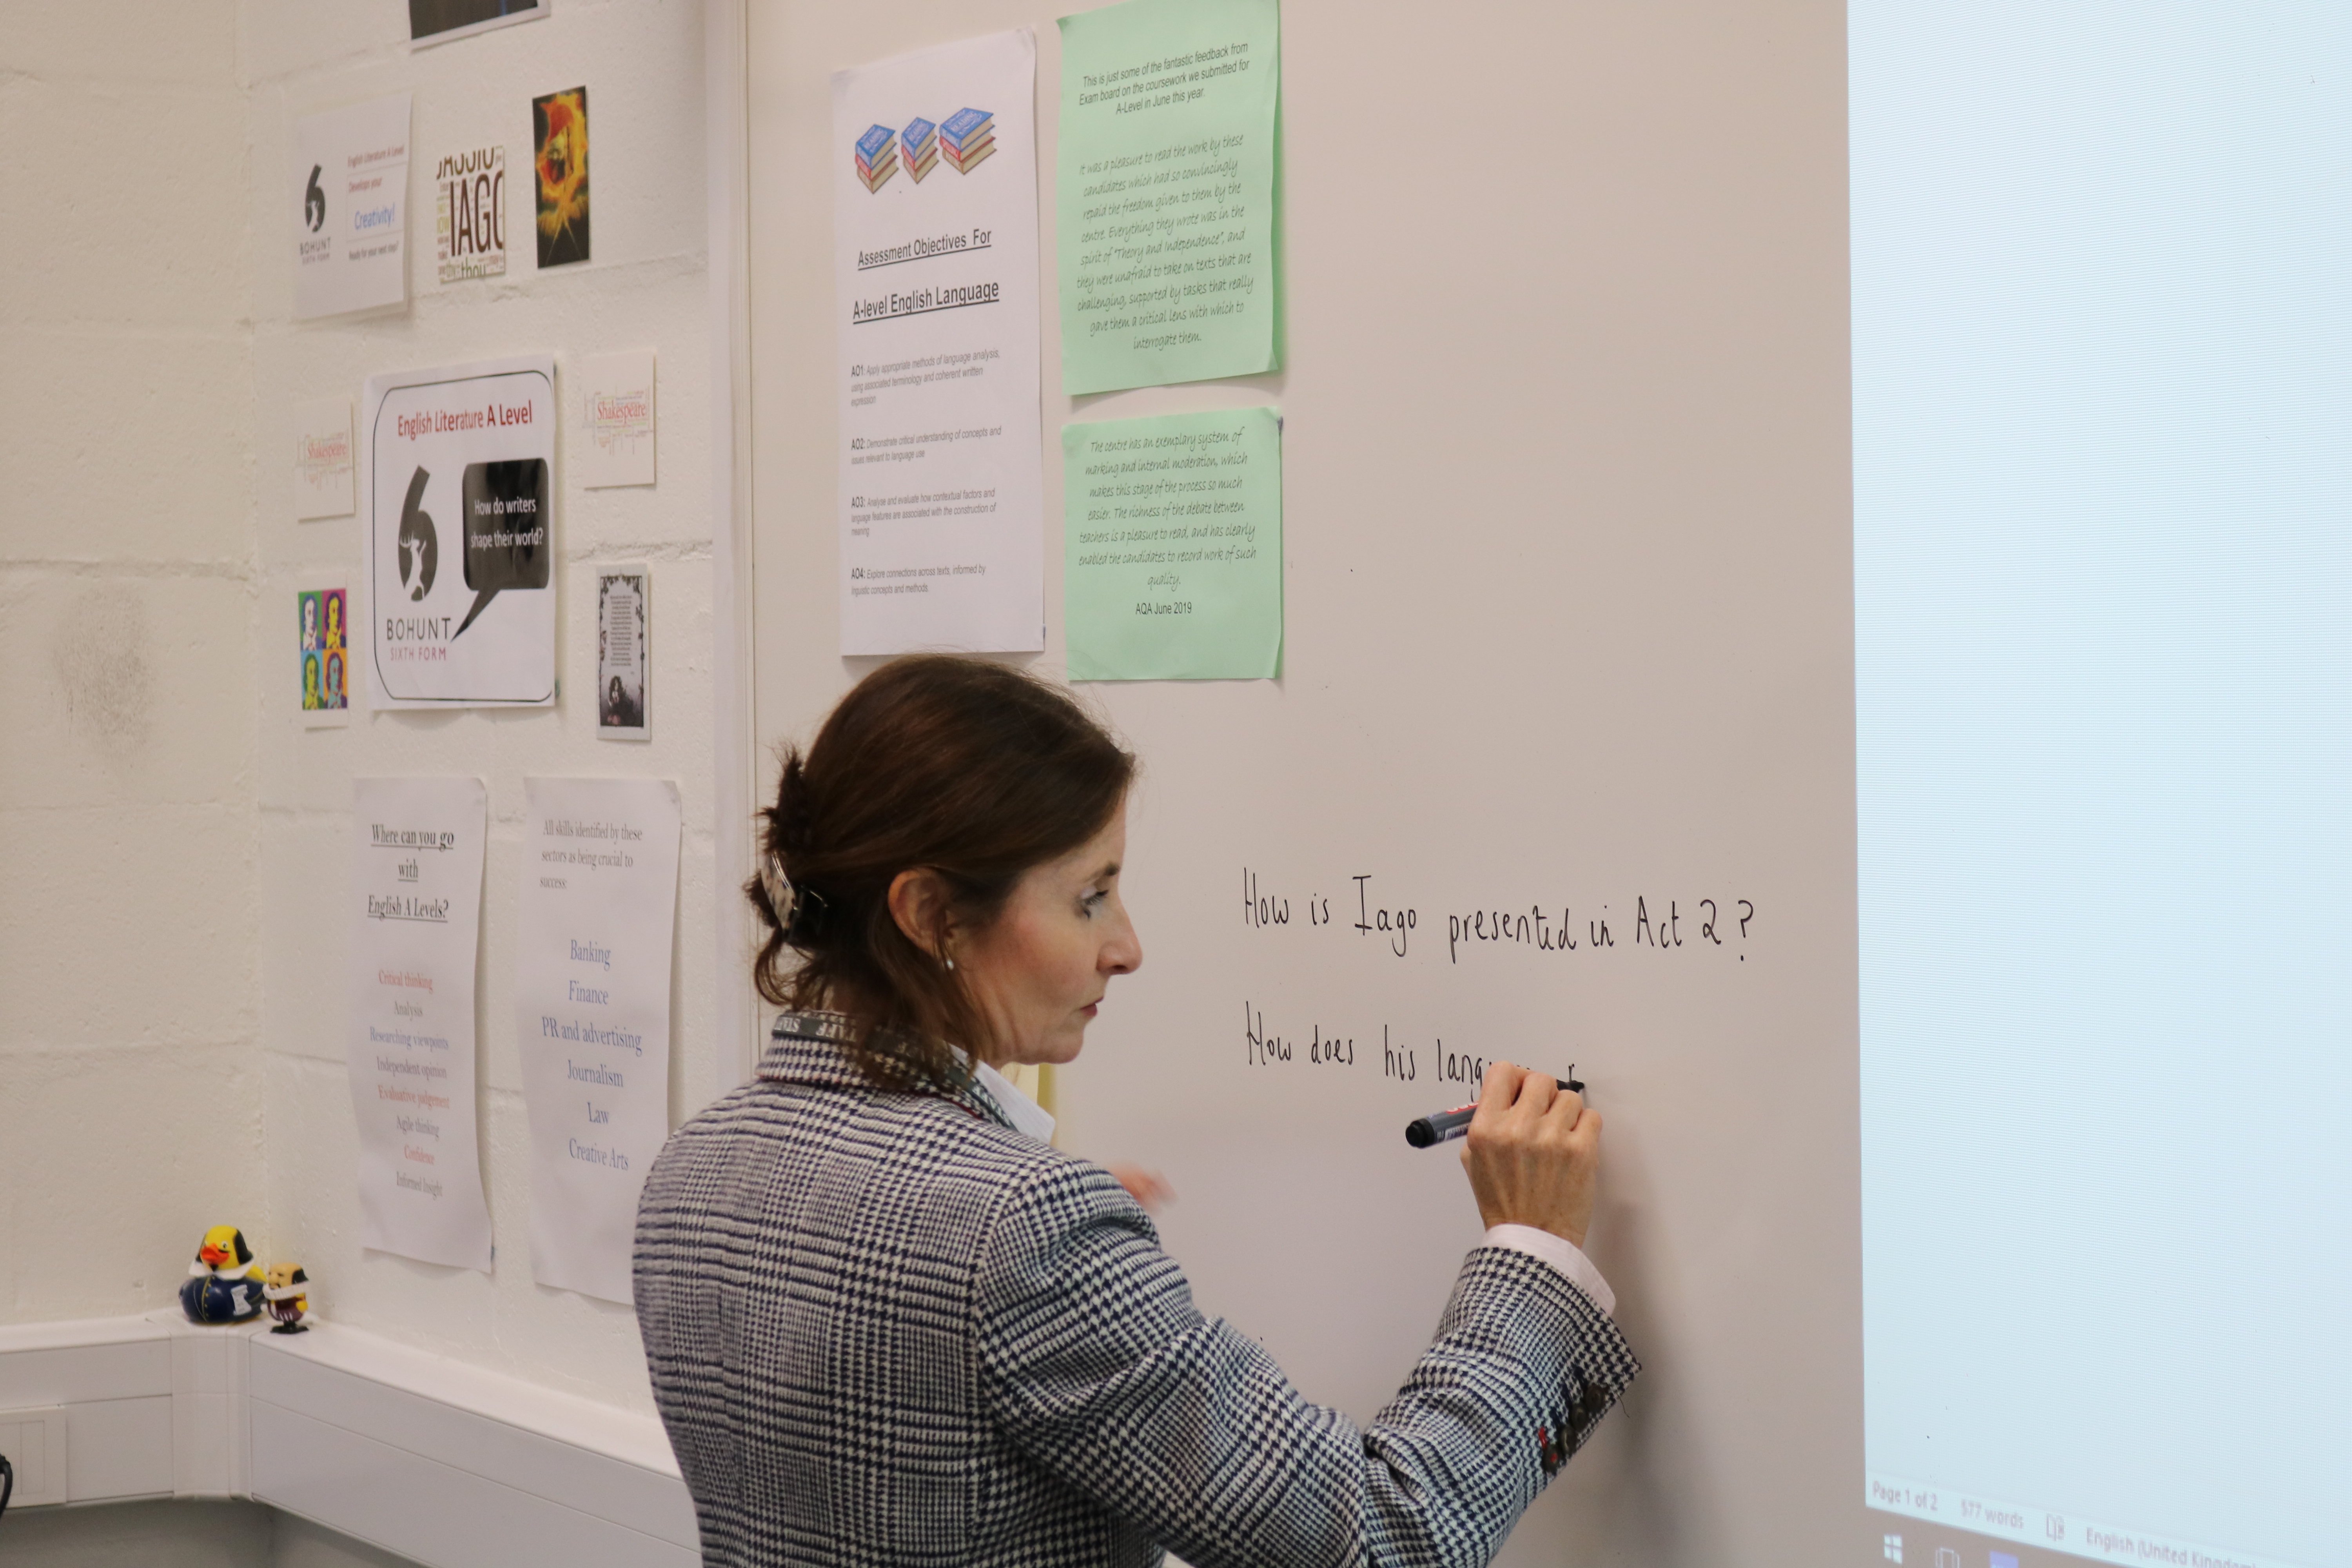 6
BOHUNT
SIXTH FORM
English Literature A Level
Develope your
Creativity!
Ready for your next step?
IAGO
thou
Shakespeare
English Literature A Level
6
BOHUNT
SIXTH FORM
How do writers
shape their world?
Shakespeare
Where can you go
with
English A Levels?
Critical thinking
Analysis
Researching viewpoints
Independent opinion
Evaluative judgement
Agile thinking
Confidence
Informed Insight
All skills identified by these
sectors as being crucial to
success:
Banking
Finance
PR and advertising
Journalism
Law
Creative Arts
Assessment Objectives For
A-level English Language
AO1: Apply appropriate methods of language analysis,
using associated terminology and coherent written
expression
AO2: Demonstrate critical understanding of concepts and
issues relevant to language use
AO3: Analyse and evaluate how contextual factors and
language features are associated with the construction of
meaning
AO4: Explore connections across texts, informed by
linguistic concepts and methods.
This is just some of the fantastic feedback from
Exam board on the coursework we submitted for
A-Level in June this year.
It was a pleasure to read the work by these
candidates which had so convincingly
repaid the freedom given to them by the
centre. Everything they wrote was in the
spirit of "Theory and Independence", and
they were unafraid to take on texts that are
challenging, supported by tasks that really
gave them a critical lens with which to
interrogate them.
The centre has an exemplary system of
marking and internal moderation, which
makes this stage of the process so much
easier. The richness of the debate between
teachers is a pleasure to read, and has clearly
enabled the candidates to record work of such
quality.
AQA June 2019
How is Iago presented in Act 2?
How does his lang
Page 1 of 2 577 words English (United Kingdom